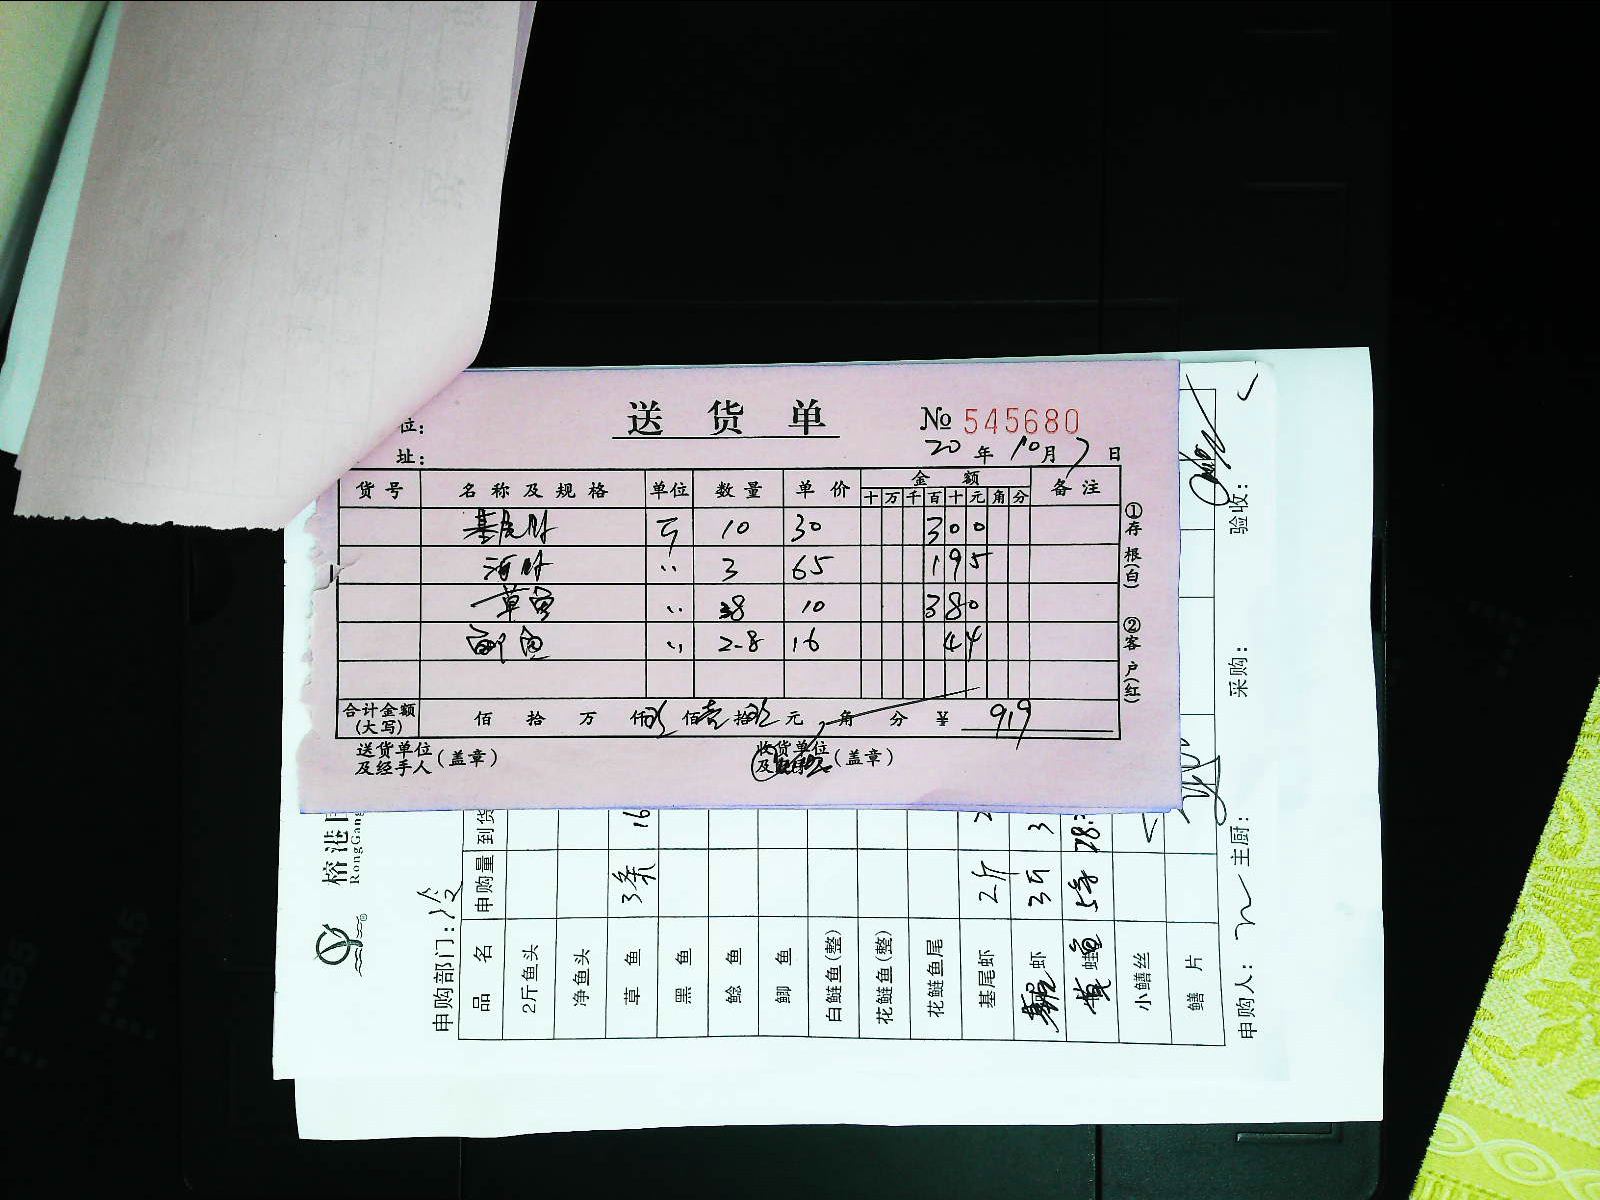 位:
送 货 单
№ 545680
址:
20 年 10 月 7 日
货号 名称及规格 单位 数量 单价 金额 备注
十 万 千 百 十 元 角 分
基尾虾 斤 10 30 300
河虾 〃 3 65 195
草鱼 〃 38 10 380
鲫鱼 〃 2.8 16 44
合计金额(大写) 佰 拾 万 仟 玖 佰 壹 拾 玖 元 角 分 ¥ 919
①存根(白) ②客户(红)
送货单位及经手人(盖章) 收货单位及(盖章)
榕港
RongGang
申购部门:冷
品名 申购量 到货
2斤鱼头
净鱼头
草鱼 3条 16
黑鱼
鲶鱼
鲫鱼
白鲢鱼(整)
花鲢鱼(整)
花鲢鱼尾
基尾虾 2斤
虾 3斤 3
28.
小鳝丝
鳝片
申购人: 主厨: 采购: 验收:
B5
A5